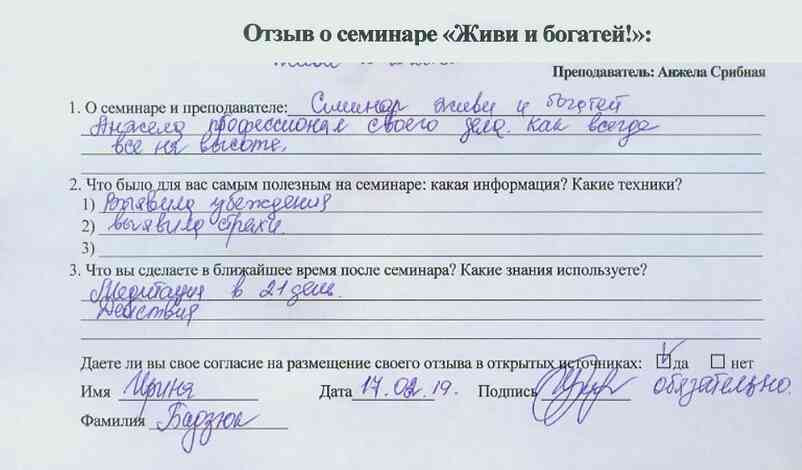 Отзыв о семинаре «Живи и богатей!»:
Преподаватель: Анжела Срибная
1. О семинаре и преподавателе: Семинар живи и богатей
Анжела профессионал своего дела. Как всегда
все на высоте.
2. Что было для вас самым полезным на семинаре: какая информация? Какие техники?
1) Выявила убеждения
2) выявила страхи.
3)
3. Что вы сделаете в ближайшее время после семинара? Какие знания используете?
Медитация в 21 день.
Действия
Даете ли вы свое согласие на размещение своего отзыва в открытых источниках: да нет
Имя Ирина Дата 17.02.19. Подпись обязательно.
Фамилия Бадзюк